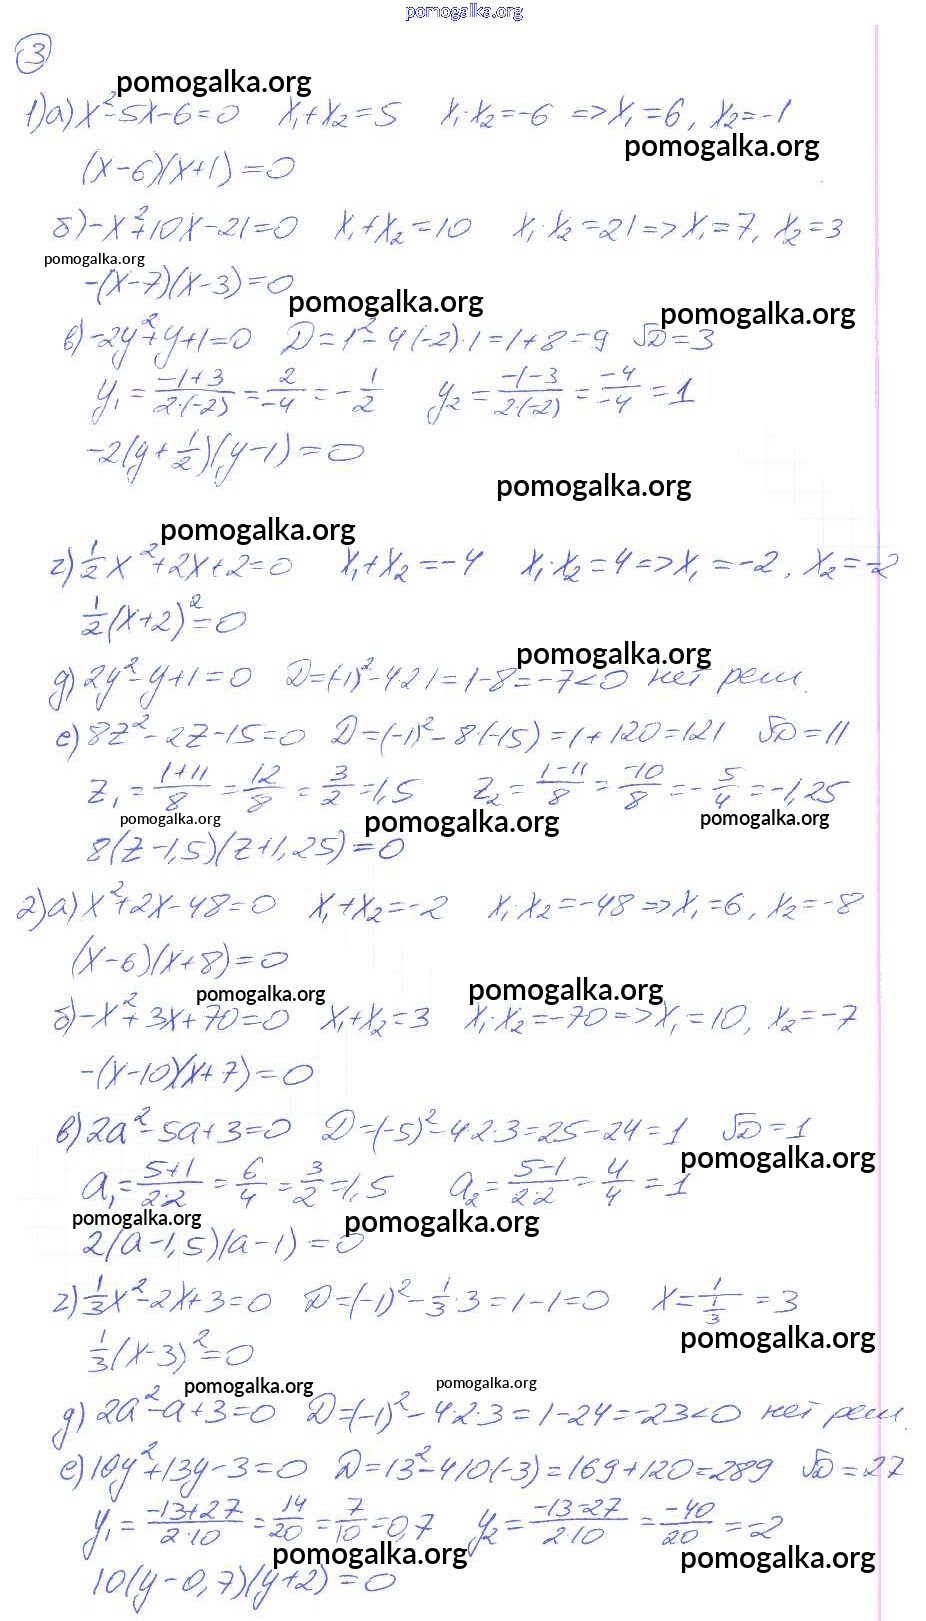 pomogalka.org
3
pomogalka.org
1) а) x²-5x-6=0 x₁+x₂=5 x₁·x₂=-6 => x₁=6, x₂=-1
pomogalka.org
(x-6)(x+1)=0
б) -x²+10x-21=0 x₁+x₂=10 x₁·x₂=21 => x₁=7, x₂=3
pomogalka.org
-(x-7)(x-3)=0
pomogalka.org
pomogalka.org
в) -2y²+y+1=0 D=1²-4(-2)·1=1+8=9 √D=3
y₁=(-1+3)/(2·(-2))=2/-4=-1/2 y₂=(-1-3)/(2(-2))=-4/-4=1
-2(y+1/2)(y-1)=0
pomogalka.org
pomogalka.org
г) 1/2x²+2x+2=0 x₁+x₂=-4 x₁·x₂=4 => x₁=-2, x₂=-2
1/2(x+2)²=0
pomogalka.org
д) 2y²-y+1=0 D=(-1)²-4·2·1=1-8=-7<0 нет реш.
е) 8z²-2z-15=0 D=(-1)²-8·(-15)=1+120=121 √D=11
z₁=(1+11)/8=12/8=3/2=1,5 z₂=(1-11)/8=-10/8=-5/4=-1,25
pomogalka.org pomogalka.org pomogalka.org
8(z-1,5)(z+1,25)=0
2) а) x²+2x-48=0 x₁+x₂=-2 x₁·x₂=-48 => x₁=6, x₂=-8
(x-6)(x+8)=0
pomogalka.org pomogalka.org
б) -x²+3x+70=0 x₁+x₂=3 x₁·x₂=-70 => x₁=10, x₂=-7
-(x-10)(x+7)=0
в) 2a²-5a+3=0 D=(-5)²-4·2·3=25-24=1 √D=1
pomogalka.org
a₁=(5+1)/(2·2)=6/4=3/2=1,5 a₂=(5-1)/(2·2)=4/4=1
pomogalka.org pomogalka.org
2(a-1,5)(a-1)=0
г) 1/3x²-2x+3=0 D=(-1)²-1/3·3=1-1=0 x=1/(1/3)=3
pomogalka.org
1/3(x-3)²=0
pomogalka.org pomogalka.org
д) 2a²-a+3=0 D=(-1)²-4·2·3=1-24=-23<0 нет реш.
е) 10y²+13y-3=0 D=13²-4·10(-3)=169+120=289 √D=27
y₁=(-13+27)/(2·10)=14/20=7/10=0,7 y₂=(-13-27)/(2·10)=-40/20=-2
pomogalka.org pomogalka.org
10(y-0,7)(y+2)=0